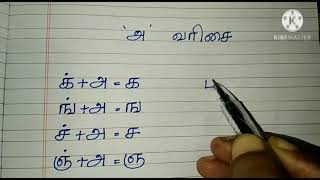 'அ' வரிசை
க் + அ = க
ங் + அ = ங
ச் + அ = ச
ஞ் + அ = ஞ
KINEMASTER